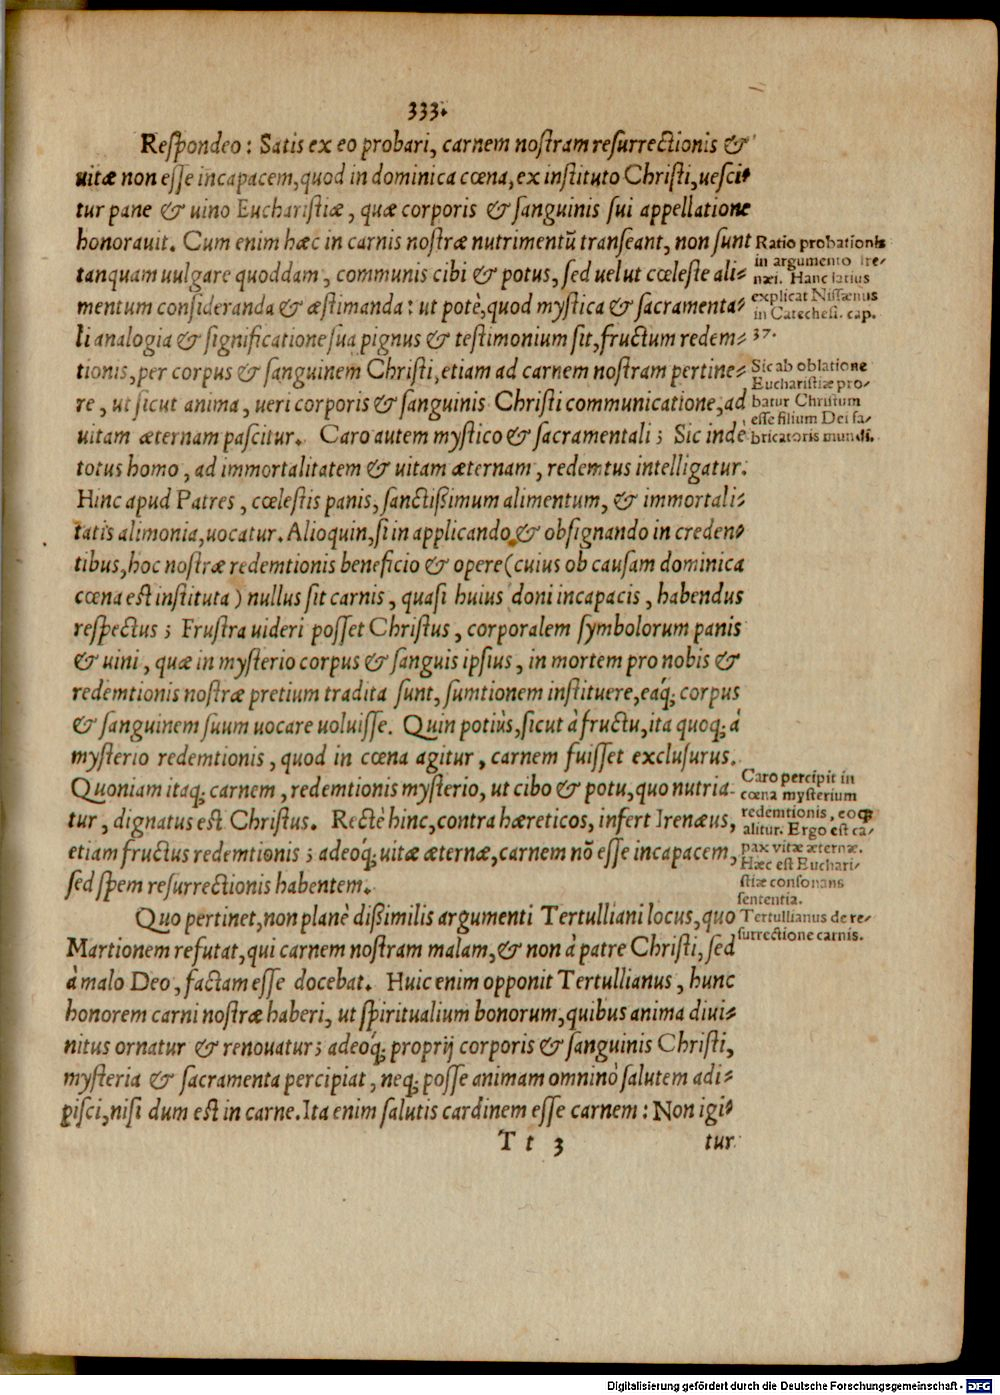 333.
Respondeo: Satis ex eo probari, carnem nostram resurrectionis &
uitæ non esse incapacem, quod in dominica cœna, ex instituto Christi, uesci-
tur pane & uino Eucharistiæ, quæ corporis & sanguinis sui appellatione
honorauit. Cum enim hæc in carnis nostræ nutrimentū transeant, non sunt
tanquam uulgare quoddam, communis cibi & potus, sed uelut cœleste ali-
mentum consideranda & æstimanda: ut potè, quod mystica & sacramenta-
li analogia & significatione sua pignus & testimonium sit, fructum redem-
tionis, per corpus & sanguinem Christi, etiam ad carnem nostram pertine-
re, ut sicut anima, ueri corporis & sanguinis Christi communicatione, ad
uitam æternam pascitur. Caro autem mystico & sacramentali; Sic inde
totus homo, ad immortalitatem & uitam æternam, redemtus intelligatur.
Hinc apud Patres, cœlestis panis, sanctißimum alimentum, & immortali-
tatis alimonia, uocatur. Alioquin, si in applicando & obsignando in creden-
tibus, hoc nostræ redemtionis beneficio & opere (cuius ob causam dominica
cœna est instituta) nullus sit carnis, quasi huius doni incapacis, habendus
respectus; Frustra uideri posset Christus, corporalem symbolorum panis
& uini, quæ in mysterio corpus & sanguis ipsius, in mortem pro nobis &
redemtionis nostræ pretium tradita sunt, sumtionem instituere, eáq; corpus
& sanguinem suum uocare uoluisse. Quin potiùs, sicut à fructu, ita quoq; à
mysterio redemtionis, quod in cœna agitur, carnem fuisset exclusurus.
Quoniam itaq; carnem, redemtionis mysterio, ut cibo & potu, quo nutria-
tur, dignatus est Christus. Rectè hinc, contra hæreticos, infert Irenæus,
etiam fructus redemtionis; adeoq; uitæ æternæ, carnem nō esse incapacem,
sed spem resurrectionis habentem.
Quo pertinet, non planè dißimilis argumenti Tertulliani locus, quo
Martionem refutat, qui carnem nostram malam, & non à patre Christi, sed
à malo Deo, factam esse docebat. Huic enim opponit Tertullianus, hunc
honorem carni nostræ haberi, ut spiritualium bonorum, quibus anima diui-
nitus ornatur & renouatur; adeóq; proprij corporis & sanguinis Christi,
mysteria & sacramenta percipiat, neq; posse animam omninò salutem adi-
pisci, nisi dum est in carne. Ita enim salutis cardinem esse carnem: Non igi-
T t 3 tur
Ratio probationis
in argumento Ire-
næi. Hanc latius
explicat Nissænus
in Cateches. cap.
37.
Sic ab oblatione
Eucharistiæ pro-
batur Christum
esse filium Dei fa-
bricatoris mundi.
Caro percipit in
cœna mysterium
redemtionis, eoq;
alitur. Ergo est ca-
pax vitæ æternæ.
Hæc est Euchari-
stiæ consonans
sententia.
Tertullianus de re-
surrectione carnis.
Digitalisierung gefördert durch die Deutsche Forschungsgemeinschaft - DFG